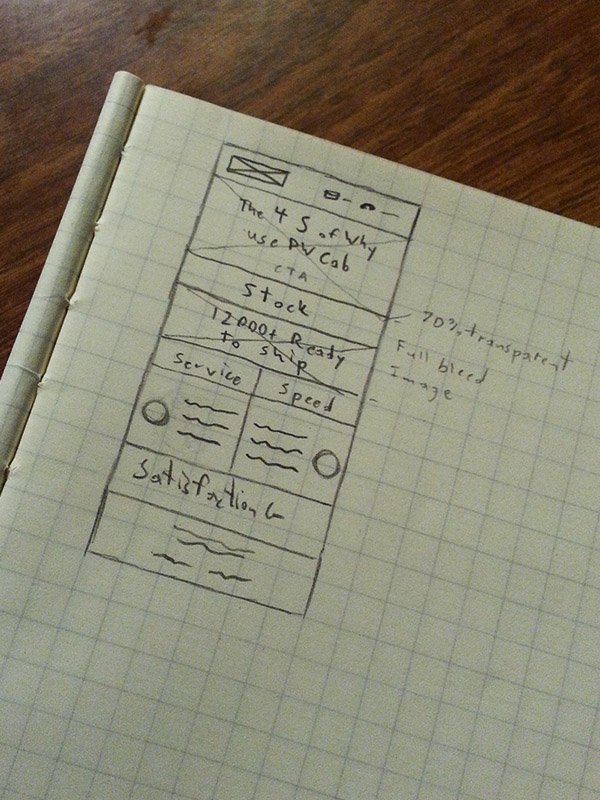 The 4 S of Why
use PW Cab
CTA
Stock
12000+ Ready
to ship
Service
Speed
Satisfaction G
70% transparent
Full bleed
Image